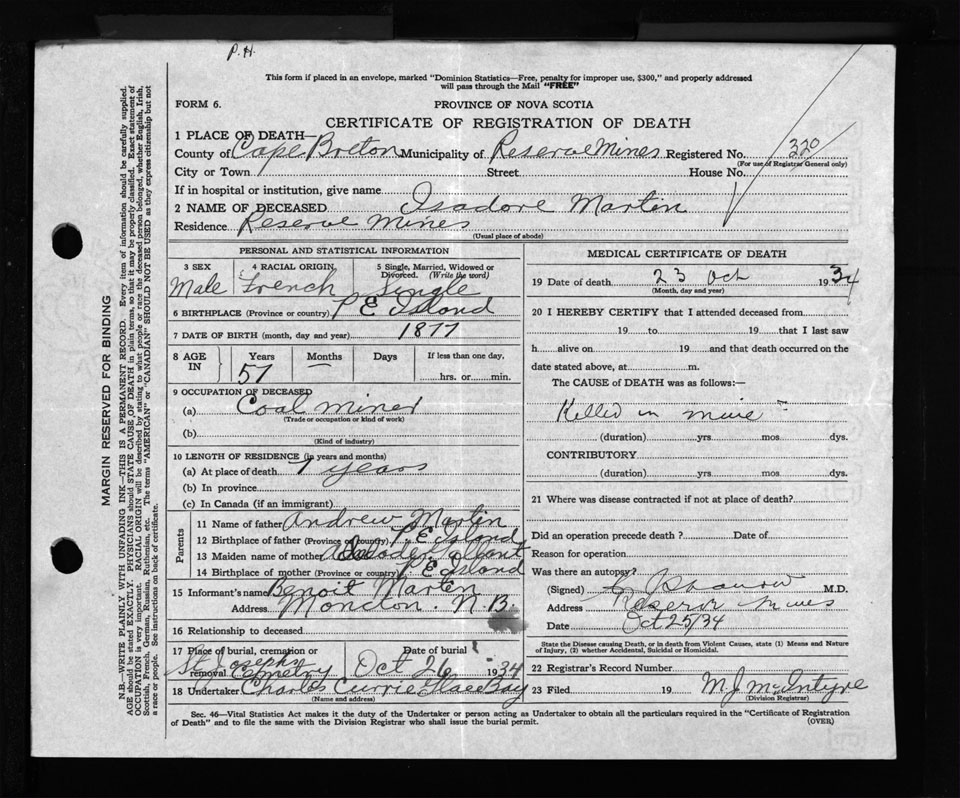 P. H.
This form if placed in an envelope, marked "Dominion Statistics—Free, penalty for improper use, $300," and properly addressed
will pass through the Mail "FREE"
FORM 6.
PROVINCE OF NOVA SCOTIA
CERTIFICATE OF REGISTRATION OF DEATH
1 PLACE OF DEATH—
County of Cape Breton Municipality of Reserve Mines Registered No. 320
(For use of Registrar General only)
City or Town Street House No.
If in hospital or institution, give name
2 NAME OF DECEASED Isadore Martin
Residence Reserve Mines
(Usual place of abode)
PERSONAL AND STATISTICAL INFORMATION
3 SEX 4 RACIAL ORIGIN 5 Single, Married, Widowed or
Divorced. (Write the word)
Male French Single
6 BIRTHPLACE (Province or country) P E Island
7 DATE OF BIRTH (month, day and year) 1877
8 AGE IN Years Months Days If less than one day,
57 — hrs. or min.
9 OCCUPATION OF DECEASED
(a) Coal miner
(Trade or occupation or kind of work)
(b)
(Kind of industry)
10 LENGTH OF RESIDENCE (in years and months)
(a) At place of death 7 years
(b) In province
(c) In Canada (if an immigrant)
Parents
11 Name of father Andrew Martin
12 Birthplace of father (Province or country) P E Island
13 Maiden name of mother Gallant
14 Birthplace of mother (Province or country) P. E Island
15 Informant's name Benoit Martin
Address Moncton. N.B.
16 Relationship to deceased
17 Place of burial, cremation or removal Date of burial
St Josephs Cemetry Oct 26 1934
18 Undertaker Charles Currie Glace Bay
(Name and address)
MEDICAL CERTIFICATE OF DEATH
19 Date of death 23 Oct 1934
(Month, day and year)
20 I HEREBY CERTIFY that I attended deceased from
19 to 19 that I last saw
h alive on 19 and that death occurred on the
date stated above, at m.
The CAUSE of DEATH was as follows:—
Killed in mine
(duration) yrs. mos. dys.
CONTRIBUTORY
(duration) yrs. mos. dys.
21 Where was disease contracted if not at place of death?
Did an operation precede death? Date of
Reason for operation
Was there an autopsy?
(Signed) M.D.
Address Reserve Mines
Date Oct 25/34
State the Disease causing Death, or in death from Violent Causes, state (1) Means and Nature
of Injury, (2) whether Accidental, Suicidal or Homicidal.
22 Registrar's Record Number
23 Filed 19 M J McIntyre
(Division Registrar)
Sec. 46—Vital Statistics Act makes it the duty of the Undertaker or person acting as Undertaker to obtain all the particulars required in the "Certificate of Registration
of Death" and to file the same with the Division Registrar who shall issue the burial permit. (OVER)
MARGIN RESERVED FOR BINDING
N.B.—WRITE PLAINLY WITH UNFADING INK—THIS IS A PERMANENT RECORD. Every item of information should be carefully supplied.
AGE should be stated EXACTLY. PHYSICIANS should STATE CAUSE OF DEATH in plain terms, so that it may be properly classified. Exact statement of
OCCUPATION is very important. RACIAL ORIGIN will be described by stating to what people or race the deceased person belonged, whether English, Irish,
Scottish, French, German, Russian, Ruthenian, etc. The terms "AMERICAN" or "CANADIAN" SHOULD NOT BE USED as they express citizenship but not
a race or people. See instructions on back of certificate.